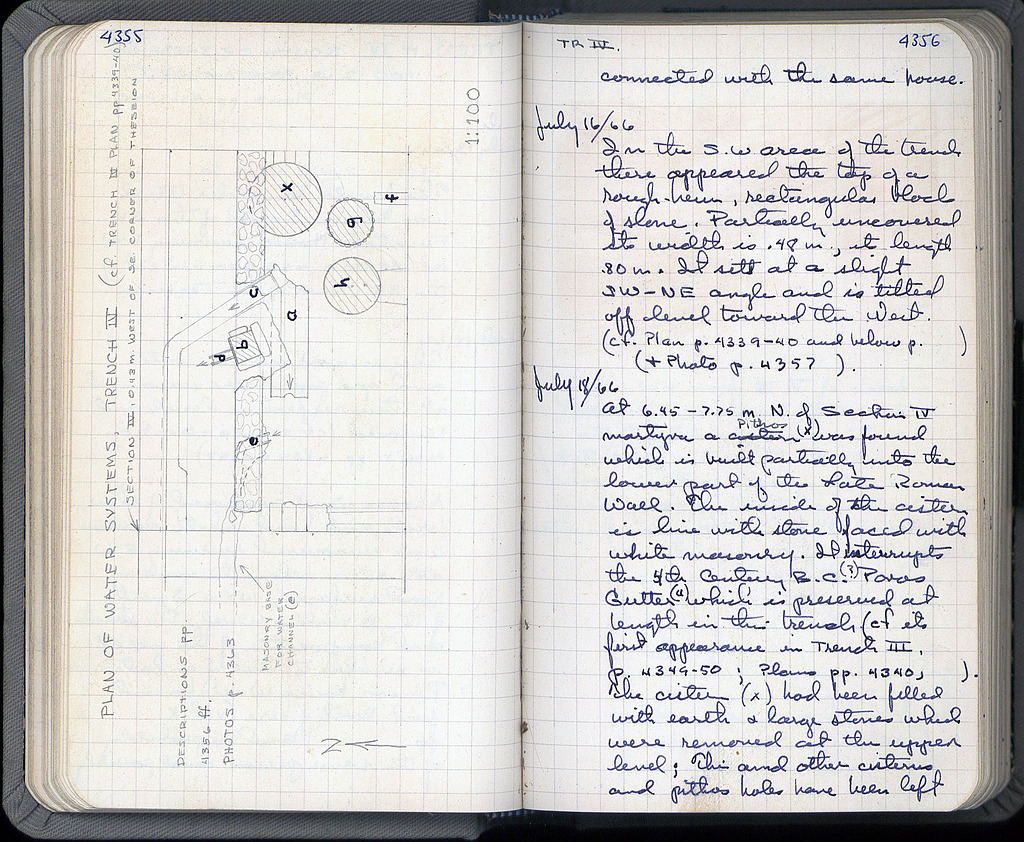 4355
PLAN OF WATER SYSTEMS, TRENCH IV (cf. TRENCH III PLAN pp 4339-40)
SECTION IV: 0.43 m. WEST OF SE. CORNER OF THESEION
1:100
x
g
f
h
c
a
b
d
e
MASONRY BASE
FOR WATER
CHANNEL (e)
DESCRIPTIONS pp.
4356 ff.
PHOTOS p. 4363
N
TR IV.
4356
connected with the same house.
July 16/66
In the S.W area of the trench
there appeared the top of a
rough-hewn, rectangular block
of stone. Partially uncovered
its width is .48 m., its length
.80 m. It sett at a slight
SW-NE angle and is tilted
off level toward the West.
(cf. Plan p. 4339-40 and below p. )
(+ Photo p. 4357 ).
July 18/66
At 6.45 - 7.75 m. N. of Section IV
martyra a Pithos (x) was found
which is built partially into the
lower part of the Late Roman
Wall. The inside of the cistern
is line with stone faced with
white masonry. It interrupts
the 4th Century B.C. (?) Poros
Gutter (a) which is preserved at
length in this trench (cf its
first appearance in Trench III,
p. 4349-50 ; Plans pp. 4340, ).
The cistern (x) had been filled
with earth & large stones which
were removed at the upper
level; This and other cisterns
and pithos holes have been left